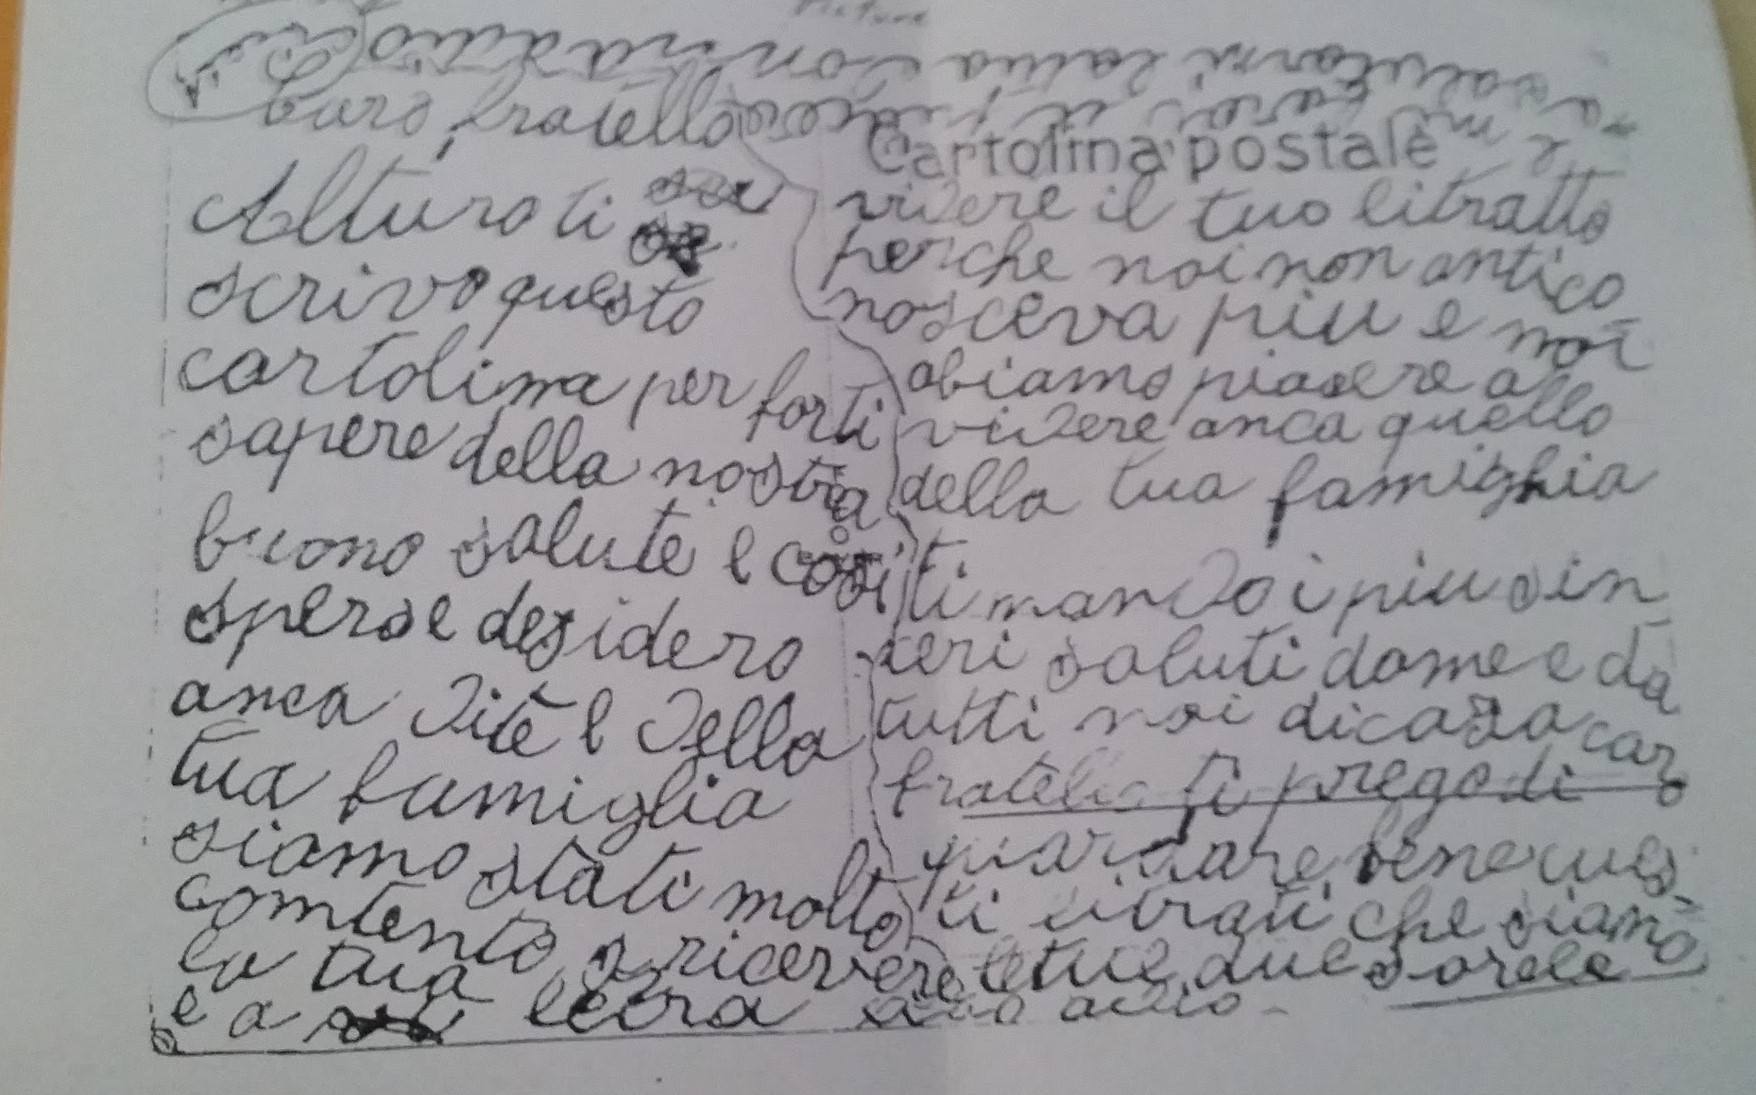 Picture
Caro fratello
Cartolina postale
Alturo ti
scrivo questo
cartolina per farti
sapere della nostra
buono salute e cosi
spero e desidero
anca di te e della
tua famiglia
siamo stati molto
contento a ricevere
la tua
e a letra
videre il tuo litratto
perche noi non antico
nosceva piu e noi
abiamo piasere a
videre anca quello
della tua famighia
ti mando i piu sin
ceri saluti dame e da
tutti noi di casa caro
fratelo ti prego di
guardare bene ques
ti litrati che siamo
le tue due sorele
adio